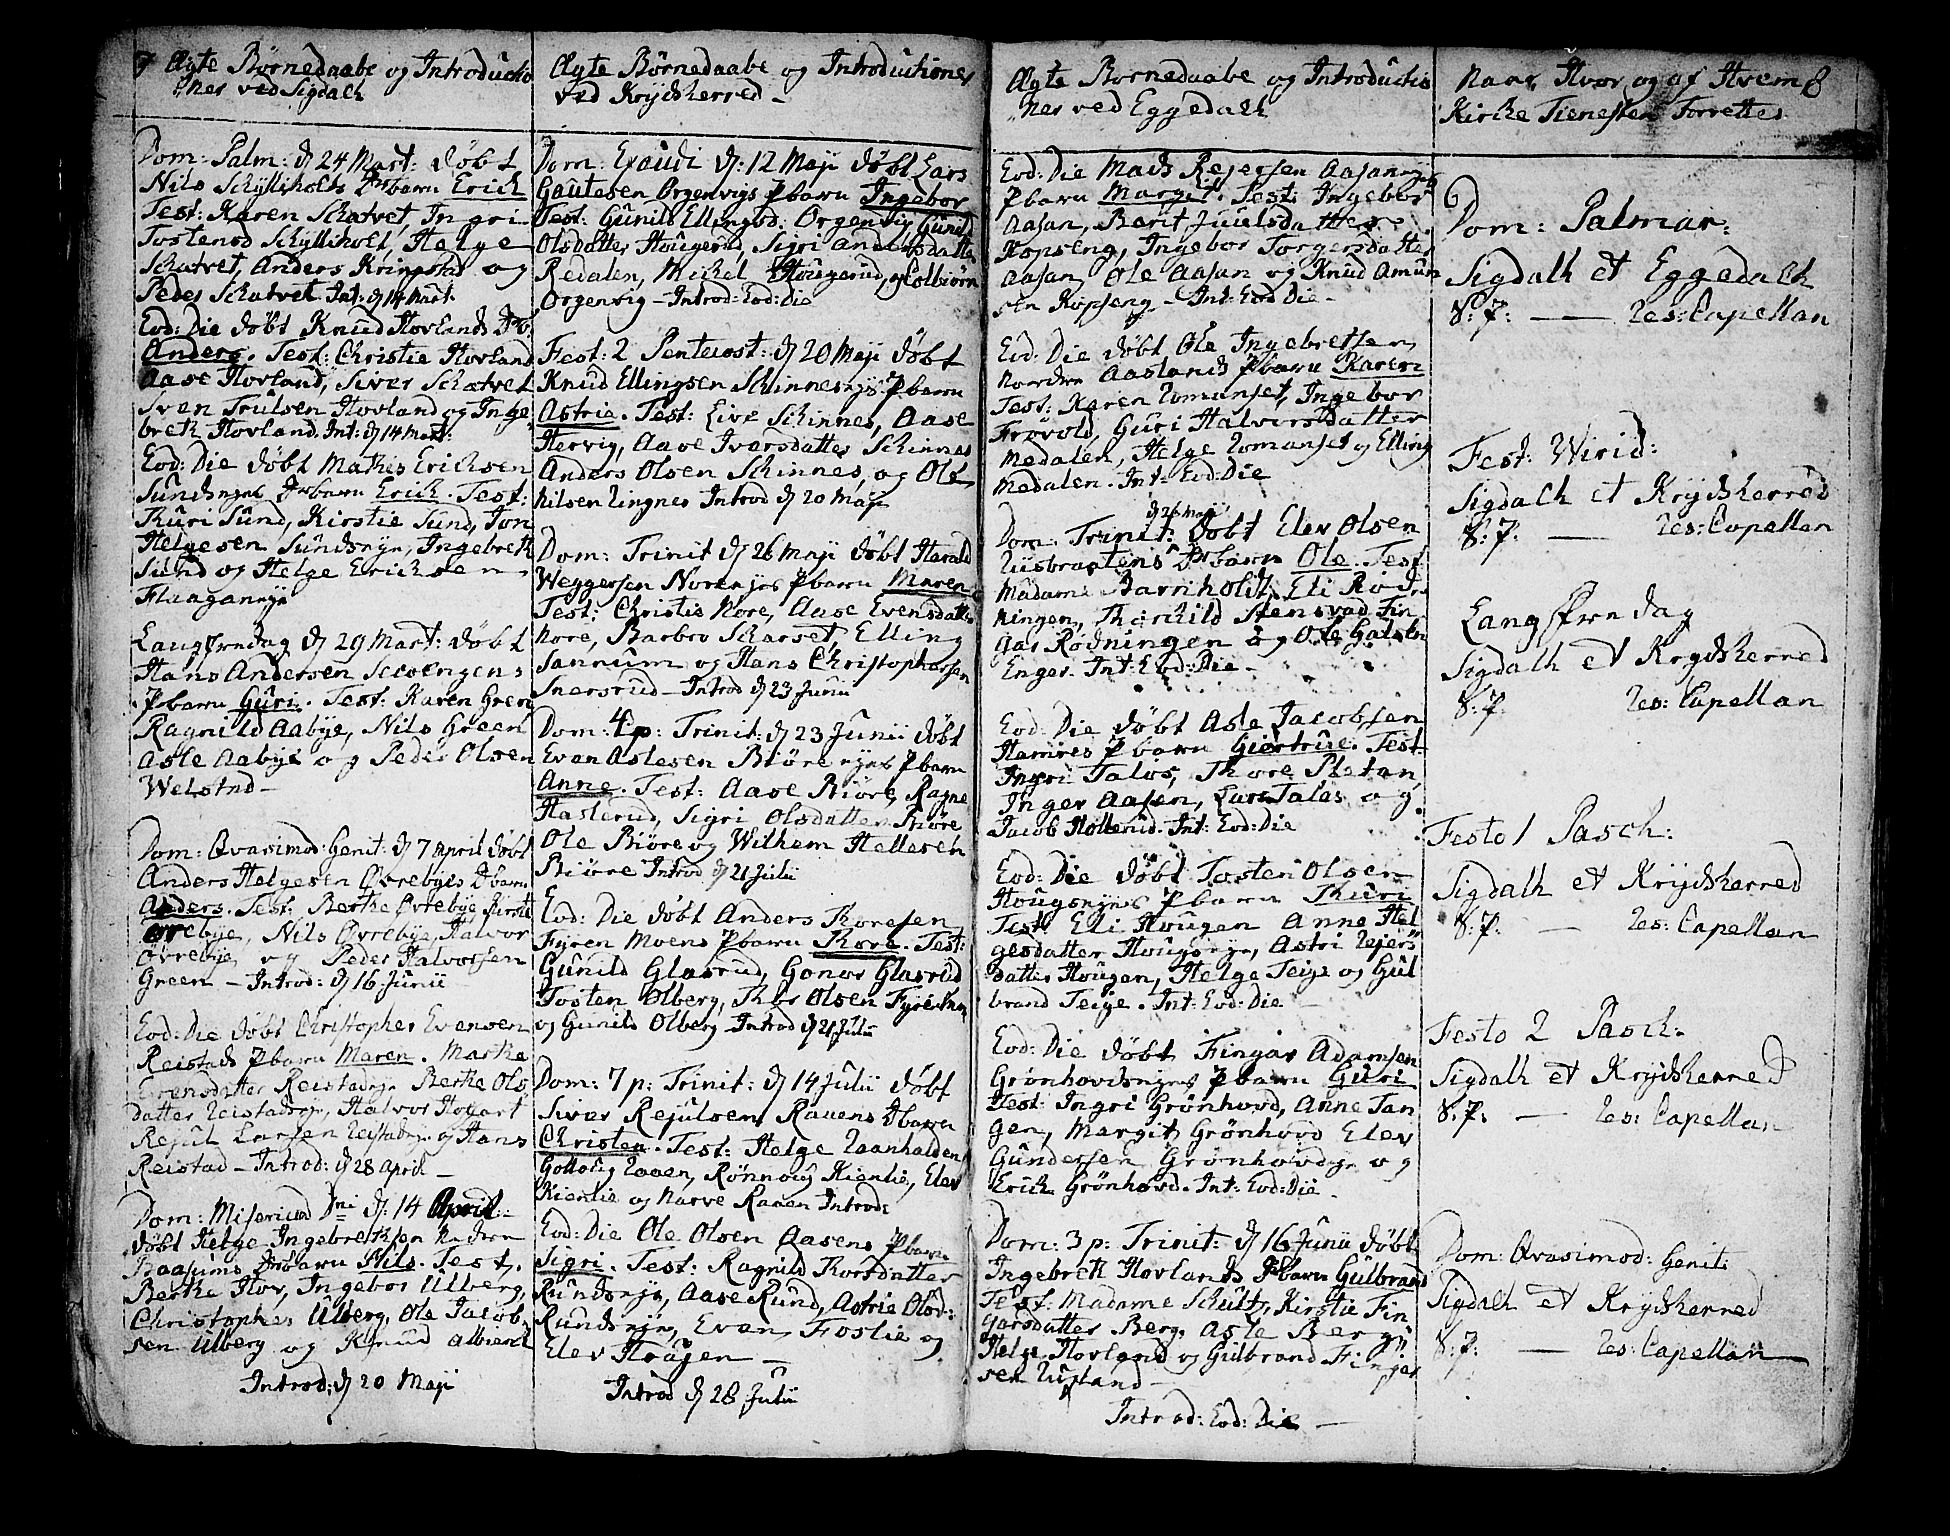 7 Ægte Börnedaabe og Introductio
nes ved Sigdalh
Dom: Palm: d 24 Mart: döbt
Nils Schÿlliholts Drbarn Erich
Test: Karen Schatvet, Ingri
Tostensd Schÿlliholt, Helge
Schatvet, Anders Kringstad og
Peder Schatvet Int: d 14 Mart.
Eod: Die döbt Knud Hovlands Db.
Anders. Test: Christie Hovland
Aase Hovland, Siver Schatvet
Sven Trulsen Hovland og Inge
breth Hovland. Int: d 14 Mart:
Eod: Die döbt Mathis Erichsen
Sundseyes Drbarn Erich. Test:
Thuri Sund, Kirstie Sund, Jon
Helgesen Sundseye, Ingebreth
Sund og Helge Erichsen
Flaaganeye
Langfredag d 29 Mart: döbt
Hans Andersen
Pbarn Guri. Test: Karen Green
Ragnild Aabÿe, Nils Green
Asle Aabÿe og Peder Olsen
Welstad –
Dom: Qvasimod: Genit: d 7 April döbt
Anders Helgesen Övrebÿes Dbarn
Anders. Test: Berthe Övrebÿe, Kirstie
Övrebÿe, Nils Övrebÿe, Halvor
Övrebÿe og Peder Halvorsen
Green – Introd: d 16 Junii
Eod: Die döbt Christopher Evensen
Reistads Pbarn Maren. Marthe
Evensdatter Reistadeye Berthe Ols
datter Reistadeye, Halvor
Rejul Larsen Reistadeye og Hans
Reistad – Introd: d 28 April –
Dom: Misericord Dni d: 14 April:
döbt Helge Ingebrethsen Nedre
Baasums Drbarn Nils. Test.
Berthe Hov, Ingebor Ulberg,
Christopher Ulberg, Ole Jacob
sen Ulberg og Knud Albiend
Introd: d 20 Maji
Ægte Börnedaabe og Introductiones
ved Krÿdsherred –
Dom: Exaudi d: 12 Maji döbt Lars
Gautesen Orgenvigs Pbarn Ingebor
Test: Gunild Ellingsd: Orgenvig, Gunild
Olsdatter Hougerud, Sigri Andersdatter
Redalen, Michel Hougerud, og Colbiörn
Orgenvig – Introd: Eod: Die
Fest: 2 Pentecost: d 20 Maji döbt
Knud Ellingsen Schinnes eyes Pbarn
Astrie. Test: Live Schinnes, Aase
Hervig, Aase Iversdatter Schinnes
Anders Olsen Schinnes, og Ole
Nilsen Ringnes Introd d 20 Maji
Dom: Trinit d 26 Maji döbt Harald
Weggersen Nore eyes Pbarn Maren
Test: Christie Nore, Aase Evensdatter
Nore, Barbro Scharset, Elling
Sannum og Hans Christophersen
Snersrud – Introd d 23 Junii
Dom: 4 p: Trinit: d 23 Junii döbt
Even Aslesen Biöre eyes Pbarn
Anne. Test: Aase Biöre, Ragne
Haslerud, Sigri Olsdatter Biöre
Ole Biöre og Wilhem Hellesen
Biöre Introd d 21 Julii
Eod: Die döbt Anders Thoresen
Fÿren Moens Pbarn Thore. Test:
Gunild Glasrud, Gonor Glasrud
Tosten Olberg, Thor Olsen
og Gunild Olberg Introd d 21 Julii
Dom: 7 p: Trinit: d 14 Julii döbt
Siver Rejulsen Ravens Dbarn
Christen. Test: Helge
Raaen, Rönnoug Kienlie, Elev
Kienlie og Narve Raaen Introd:
Eod: Die Ole Olsen Aasens Pbarn
Sigri. Test: Ragnild Thorsdatter
Rundseye, Aase Rund, Astrie Olsd:
Rundseye, Even Foslie og
Elev Haugen –
Introd d 28 Julii
Ægte Börnedaabe og Introductio
nes ved Eggedalh
Eod: Die Mads Rejersen Aasaneyes
Pbarn Margit. Test: Ingebor
Aasan, Berit Juulsdatter
Kopseng, Ingebor Torgersdatter
Aasan, Ole Aasan og Knud Amun
sen Kopseng – Int: Eod Die –
Eod: Die döbt Ole Ingebretsen
Nordre Aaslands Pbarn Karen
Test: Karen Romunset, Ingebor
Frövold, Guri Halvorsdatter
Medalen, Helge Romunset og Elling
Medalen. Int: Eod: Die
d 26 Maji
Dom: Trinit: döbt Elev Olsen
Rusbraatens Drbarn Ole. Test
Madame Barnholdt, Eli Röd
ningen, Thorchild Stensvad Fin
gar Rödningen og Ole Halsten
Enger. Int: Eod: Die –
Eod: Die döbt Asle Jacobsen
Hamres Pbarn Giertrue. Test
Ingri Taloe, Thore Pletan,
Inger Aasen, Lars Tales og
Jacob Hollerud. Int: Eod: Die
Eod: Die döbt Tosten Olsen
Hougseyes Pbarn Thuri
Test Eli Hougen Anne Hel
gesdatter Hougseye, Astri Rejers
datter Hougen, Helge Teige og Gul
brand Teige. Int: Eod: Die –
Eod: Die döbt Fingar Adamsen
Grönhovdseyes Pbarn Guri
Test: Ingri Grönhovd, Anne Tan
gen, Margit Grönhovd Elev
Gundersen Grönhovdeye og
Erich Grönhovd. Int: Eod: Die –
Dom: 3 p: Trinit: d 16 Junii döbt
Ingebreth Hovlands Drbarn Gulbrand
Test: Madame Schultz, Kirstie Fin
garsdatter Berg, Asle Berg,
Helge Hovland og Gulbrand Fingar
sen Rustand –
Introd: Eod: Die –
Naar, Hvor og af Hvem 8
Kirke Tienesten Forrettes
Dom: Palmar:
Sigdalh et Eggedalh
S: P: — Res: Capellan
Fest: Virid:
Sigdalh et Krÿdsherred
S: P: — Res: Capellan
Langfredag
Sigdalh et Krÿdsherred
S: P: Res: Capellan
Festo 1 Pasch:
Sigdalh et Krÿdsherred
S: P: — Res: Capellan
Festo 2 Pasch:
Sigdalh et Krÿdsherred
S: P: — Res: Capellan
Dom: Qvasimod: Genit:
Sigdalh et Krÿdsherred
S: P: — Res: Capellan